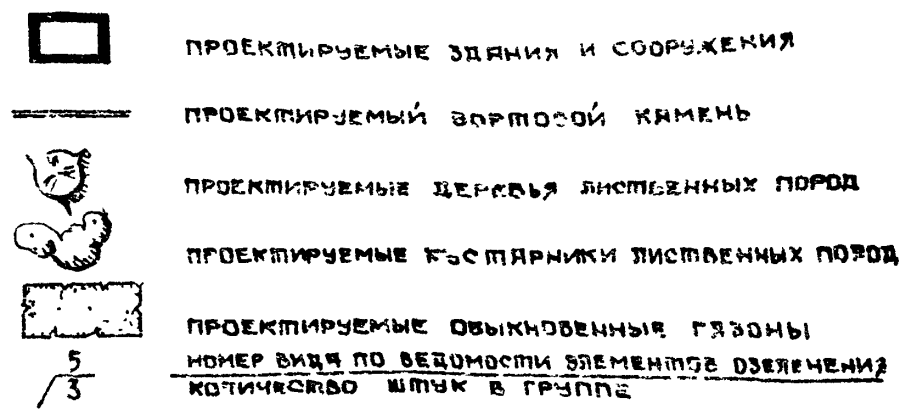 ПРОЕКТИРУЕМЫЕ ЗДАНИЯ И СООРУЖЕНИЯ
ПРОЕКТИРУЕМЫЙ БОРТОВОЙ КАМЕНЬ
ПРОЕКТИРУЕМЫЕ ДЕРЕВЬЯ ЛИСТВЕННЫХ ПОРОД
ПРОЕКТИРУЕМЫЕ КУСТАРНИКИ ЛИСТВЕННЫХ ПОРОД
ПРОЕКТИРУЕМЫЕ ОБЫКНОВЕННЫЕ ГАЗОНЫ
5 НОМЕР ВИДА ПО ВЕДОМОСТИ ЭЛЕМЕНТОВ ОЗЕЛЕНЕНИЯ
3 КОЛИЧЕСТВО ШТУК В ГРУППЕ